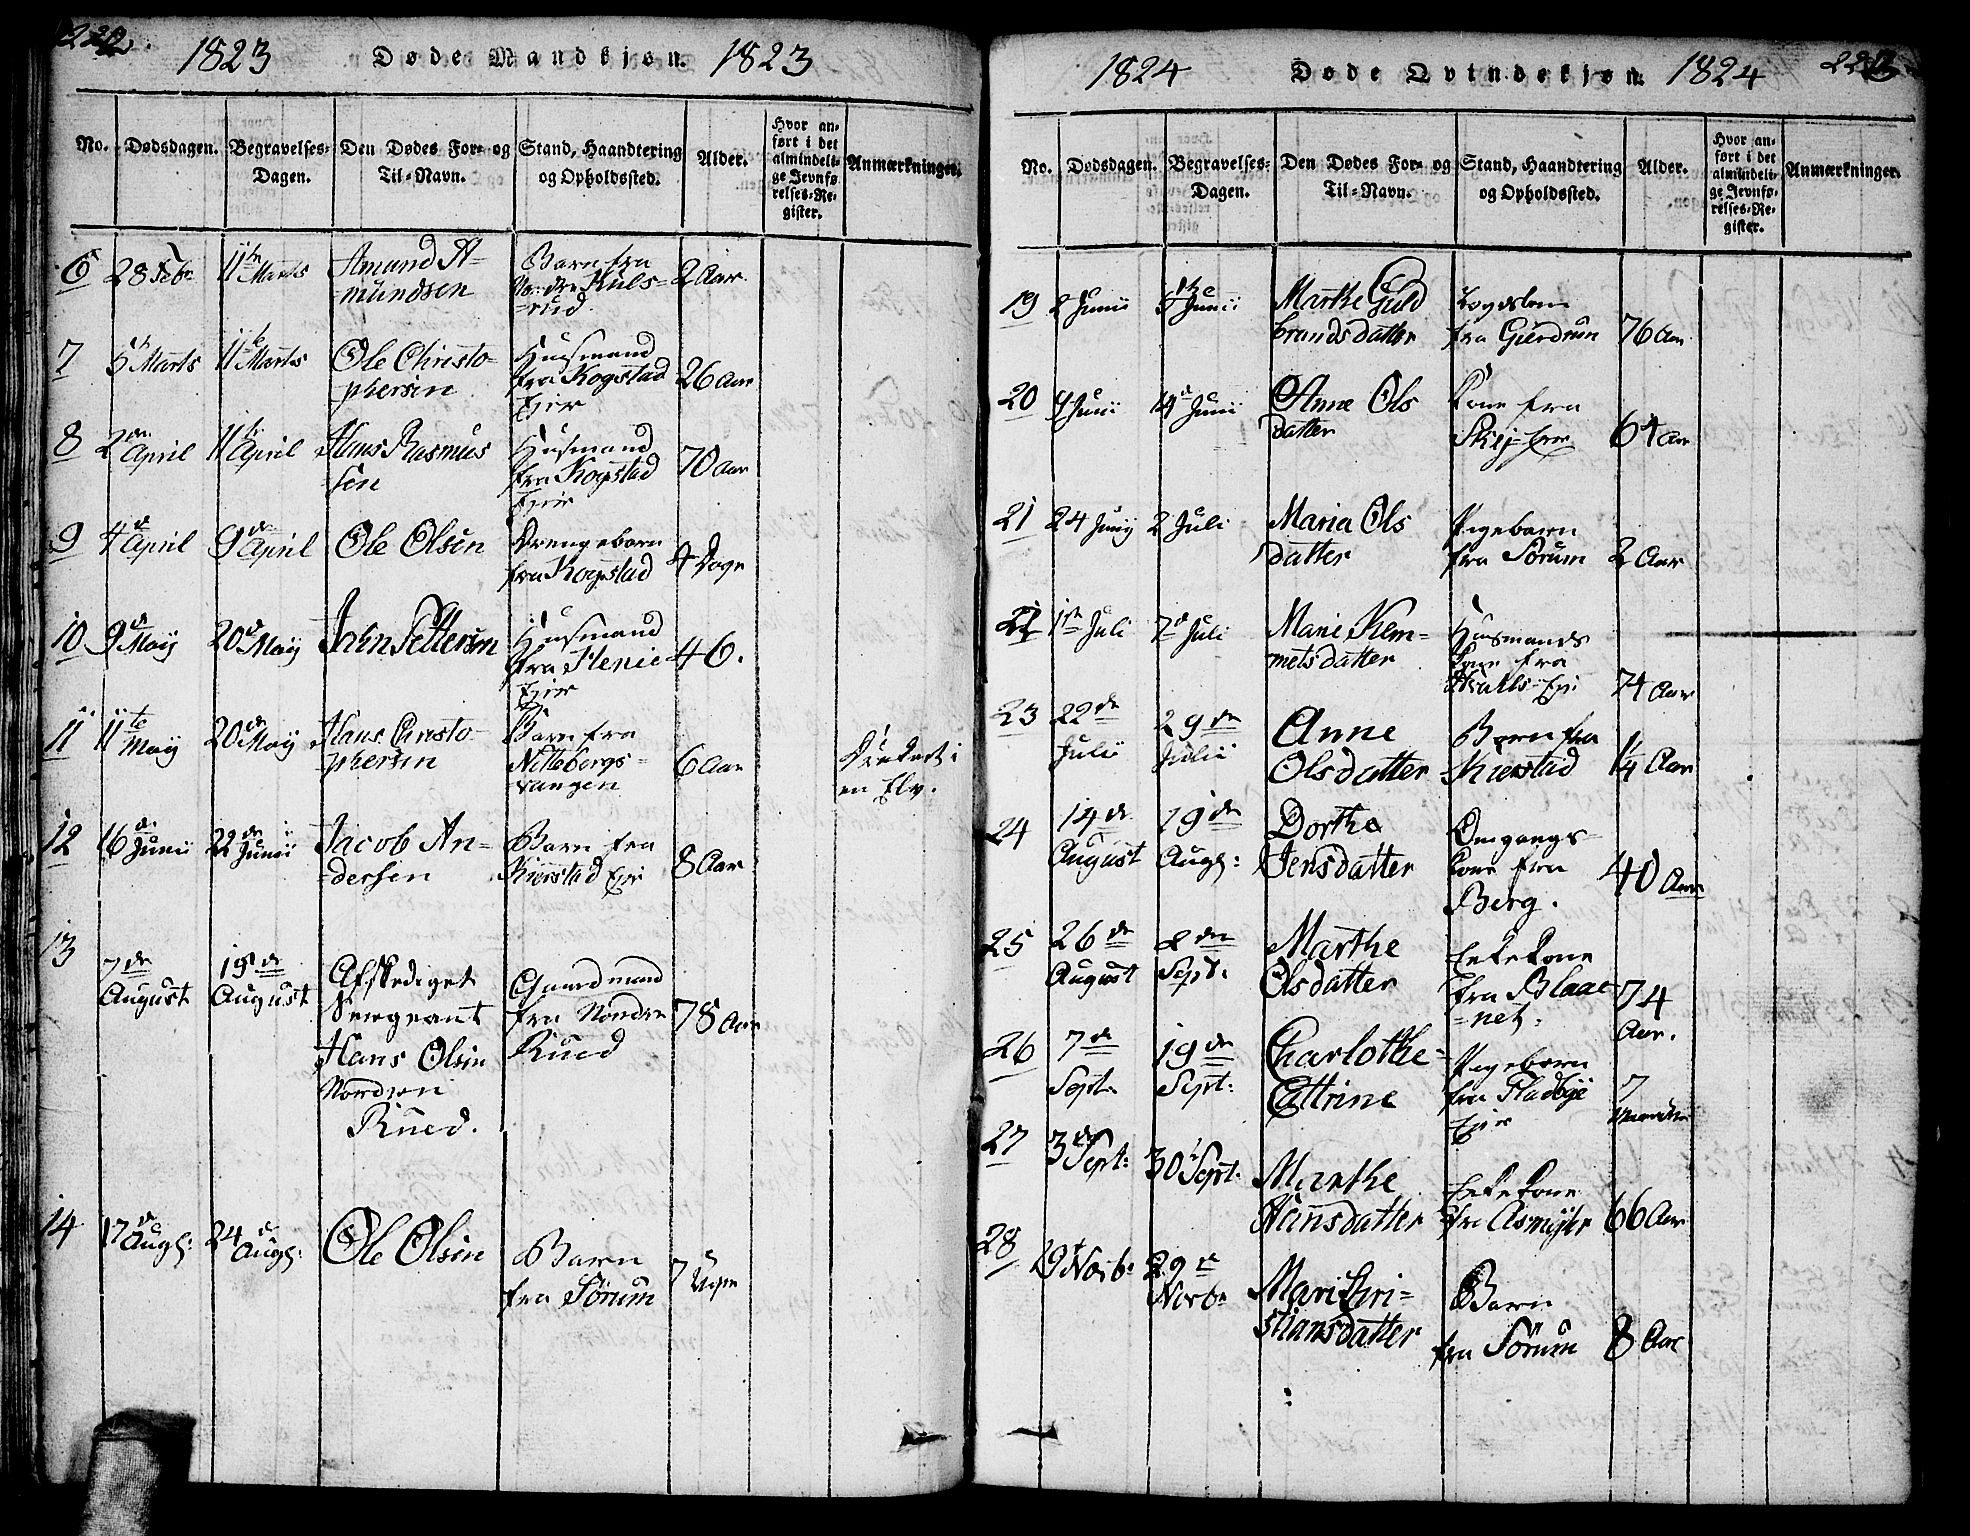 222.
1823 Døde Mandkjøn. 1823
No. Dødsdagen. Begravelses-Dagen. Den Dødes For- og Til-Navn. Stand, Haandtering og Opholdssted. Alder. Hvor anført i det almindelige Jevnførelses-Register. Anmærkninger.
6 28 Febr 11te Marts Amund A-
mundsen
Barn fra
Nordre Kuls-
rud
2 Aar
7 5 Marts 11te Marts Ole Christo-
phersen
Huusmand
fra Kogstad
Eier
26 Aar
8 2den April 11te April Hans Rasmus
sen
Huusmand
fra Kogstad
Eier
70 Aar
9 4de April 9de April Ole Olsen
Drengebarn
fra Kogstad
4 Dage
10 9de Maÿ 20de Maÿ John Pettersen
Huusmand
fra Henie
Eier
46.
11 11te Maÿ 20de Maÿ Hans Christo-
phersen
Barn fra
Nittebergs-
vangen
6 Aar
Druknet i
en Elv.
12 16de Junii 22de Junii Jacob An-
dersen
Barn fra
Kierstad Eie
8 Aar
13 7de August 19de August
Afskediget
Sergeant
Hans Olsen
Nordren
Rued.
Gaardmand
fra Nordre
Rued
78 Aar
14 17de Augs: 24de Augs: Ole Olsen
Barn
fra Sørum
7 Uger
1824 Døde Qvindekjøn. 1824
No. Dødsdagen. Begravelses-Dagen. Den Dødes For- og Til-Navn. Stand, Haandtering og Opholdssted. Alder. Hvor anført i det almindelige Jevnførelses-Register. Anmærkninger.
19 2 Junii Junii Marthe Guld
brandsdatter
fra Gierdrum
76 Aar
20 4 Junii 14de Junii Anne Ols
datter
Kone fra
64 Aar
21 24 Juniÿ 2 Juli Maria Ols
datter
Pigebarn
fra Sørum
2 Aar
22 1ste Juli 7de Juli Marie Kem-
metsdatter
Huusmands
Kone fra
74 Aar
23 22de
Julii
29de
Julii
Anne
Olsdatter
Barn fra
Kierstad
1/4 Aar
24 14de
August
19de
Augs:
Dorthe
Jensdatter
Omgangs-
Kone fra
Berg.
40 Aar
25 26de
August
2den
Sept:
Marthe
Olsdatter
Enkekone
fra Blaae-
net.
74
Aar.
26 7de
Sept:
19de
Sept:
Charlothe-
Cattrine
Pigebarn
fra Fladbye
Eier
7
Maaneder
27 3de Sept: 30te Sept:
Marthe
Hansdatter
Enkekone
fra Asmyhr
66 Aar
28 19de Novbr 29de
Novbr
Mari Chri-
stiansdatter
Barn
fra Sörum
8 Aar